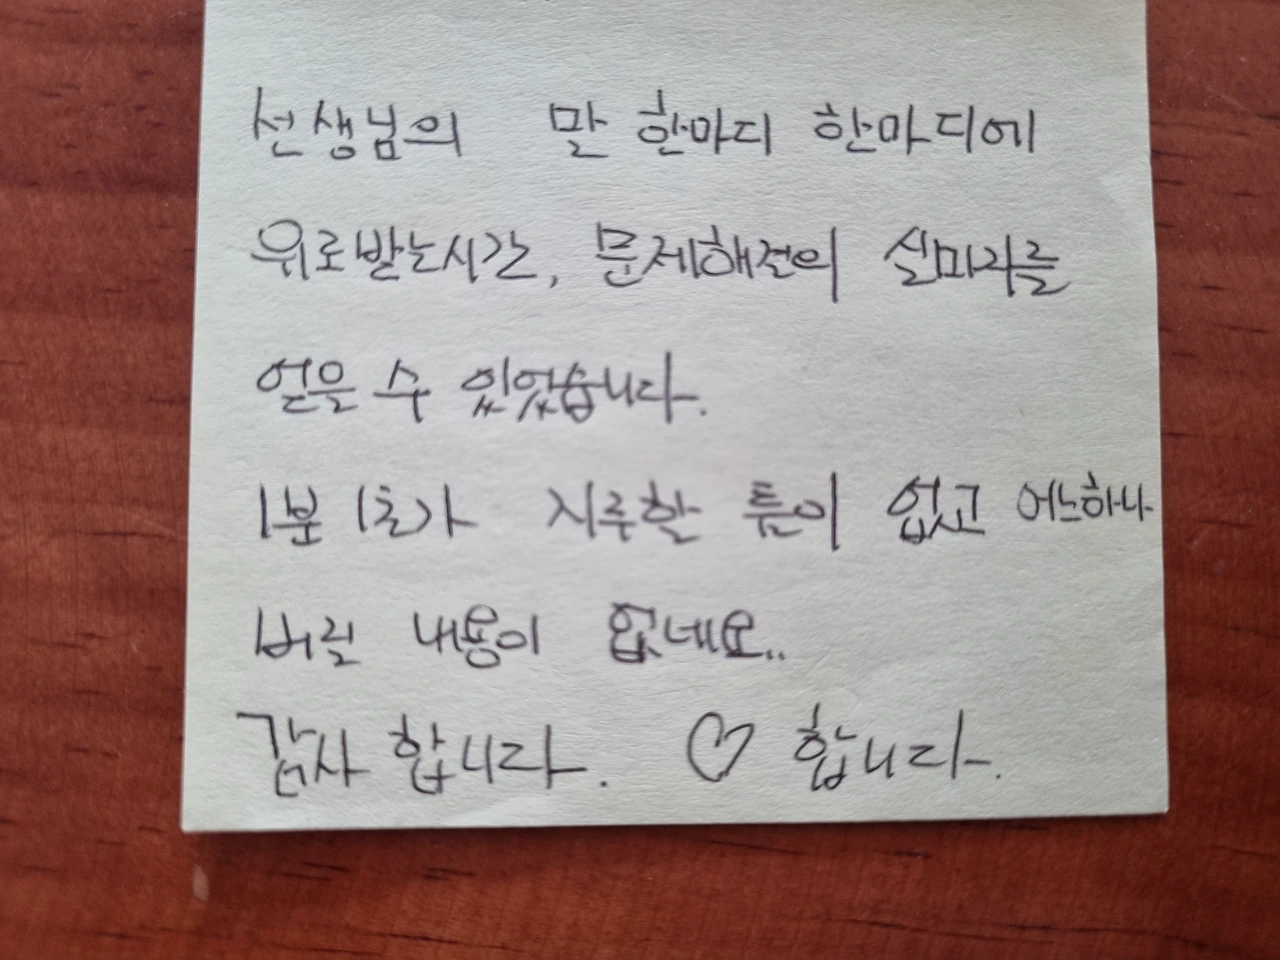 선생님의 말 한마디 한마디에
위로받는시간, 문제해결의 실마리를
얻을 수 있었습니다.
1분 1초가 지루할 틈이 없고 어느하나
버릴 내용이 없네요..
감사 합니다. ♡ 합니다.